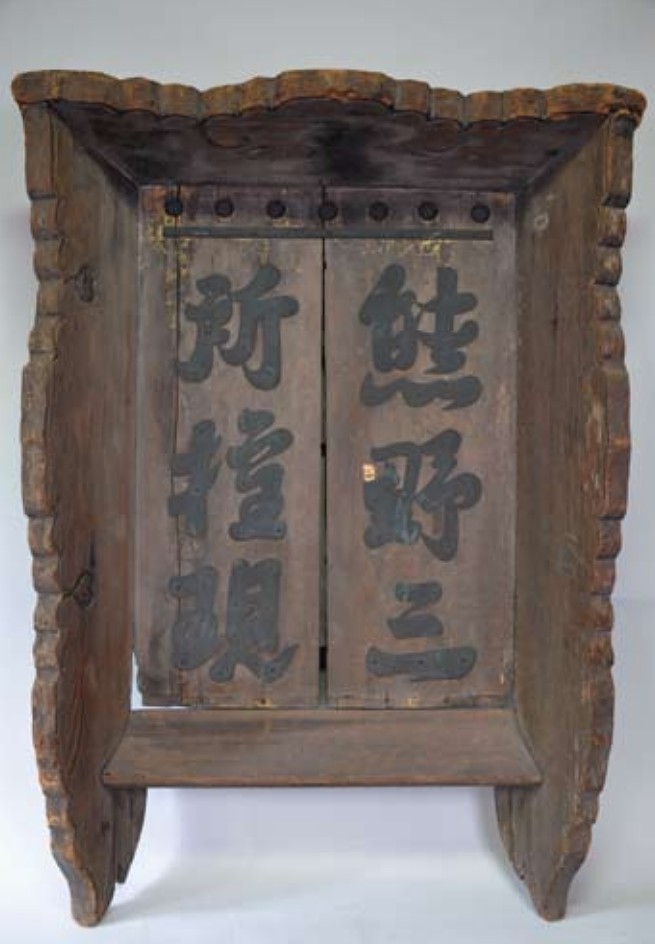 熊野三
所権現